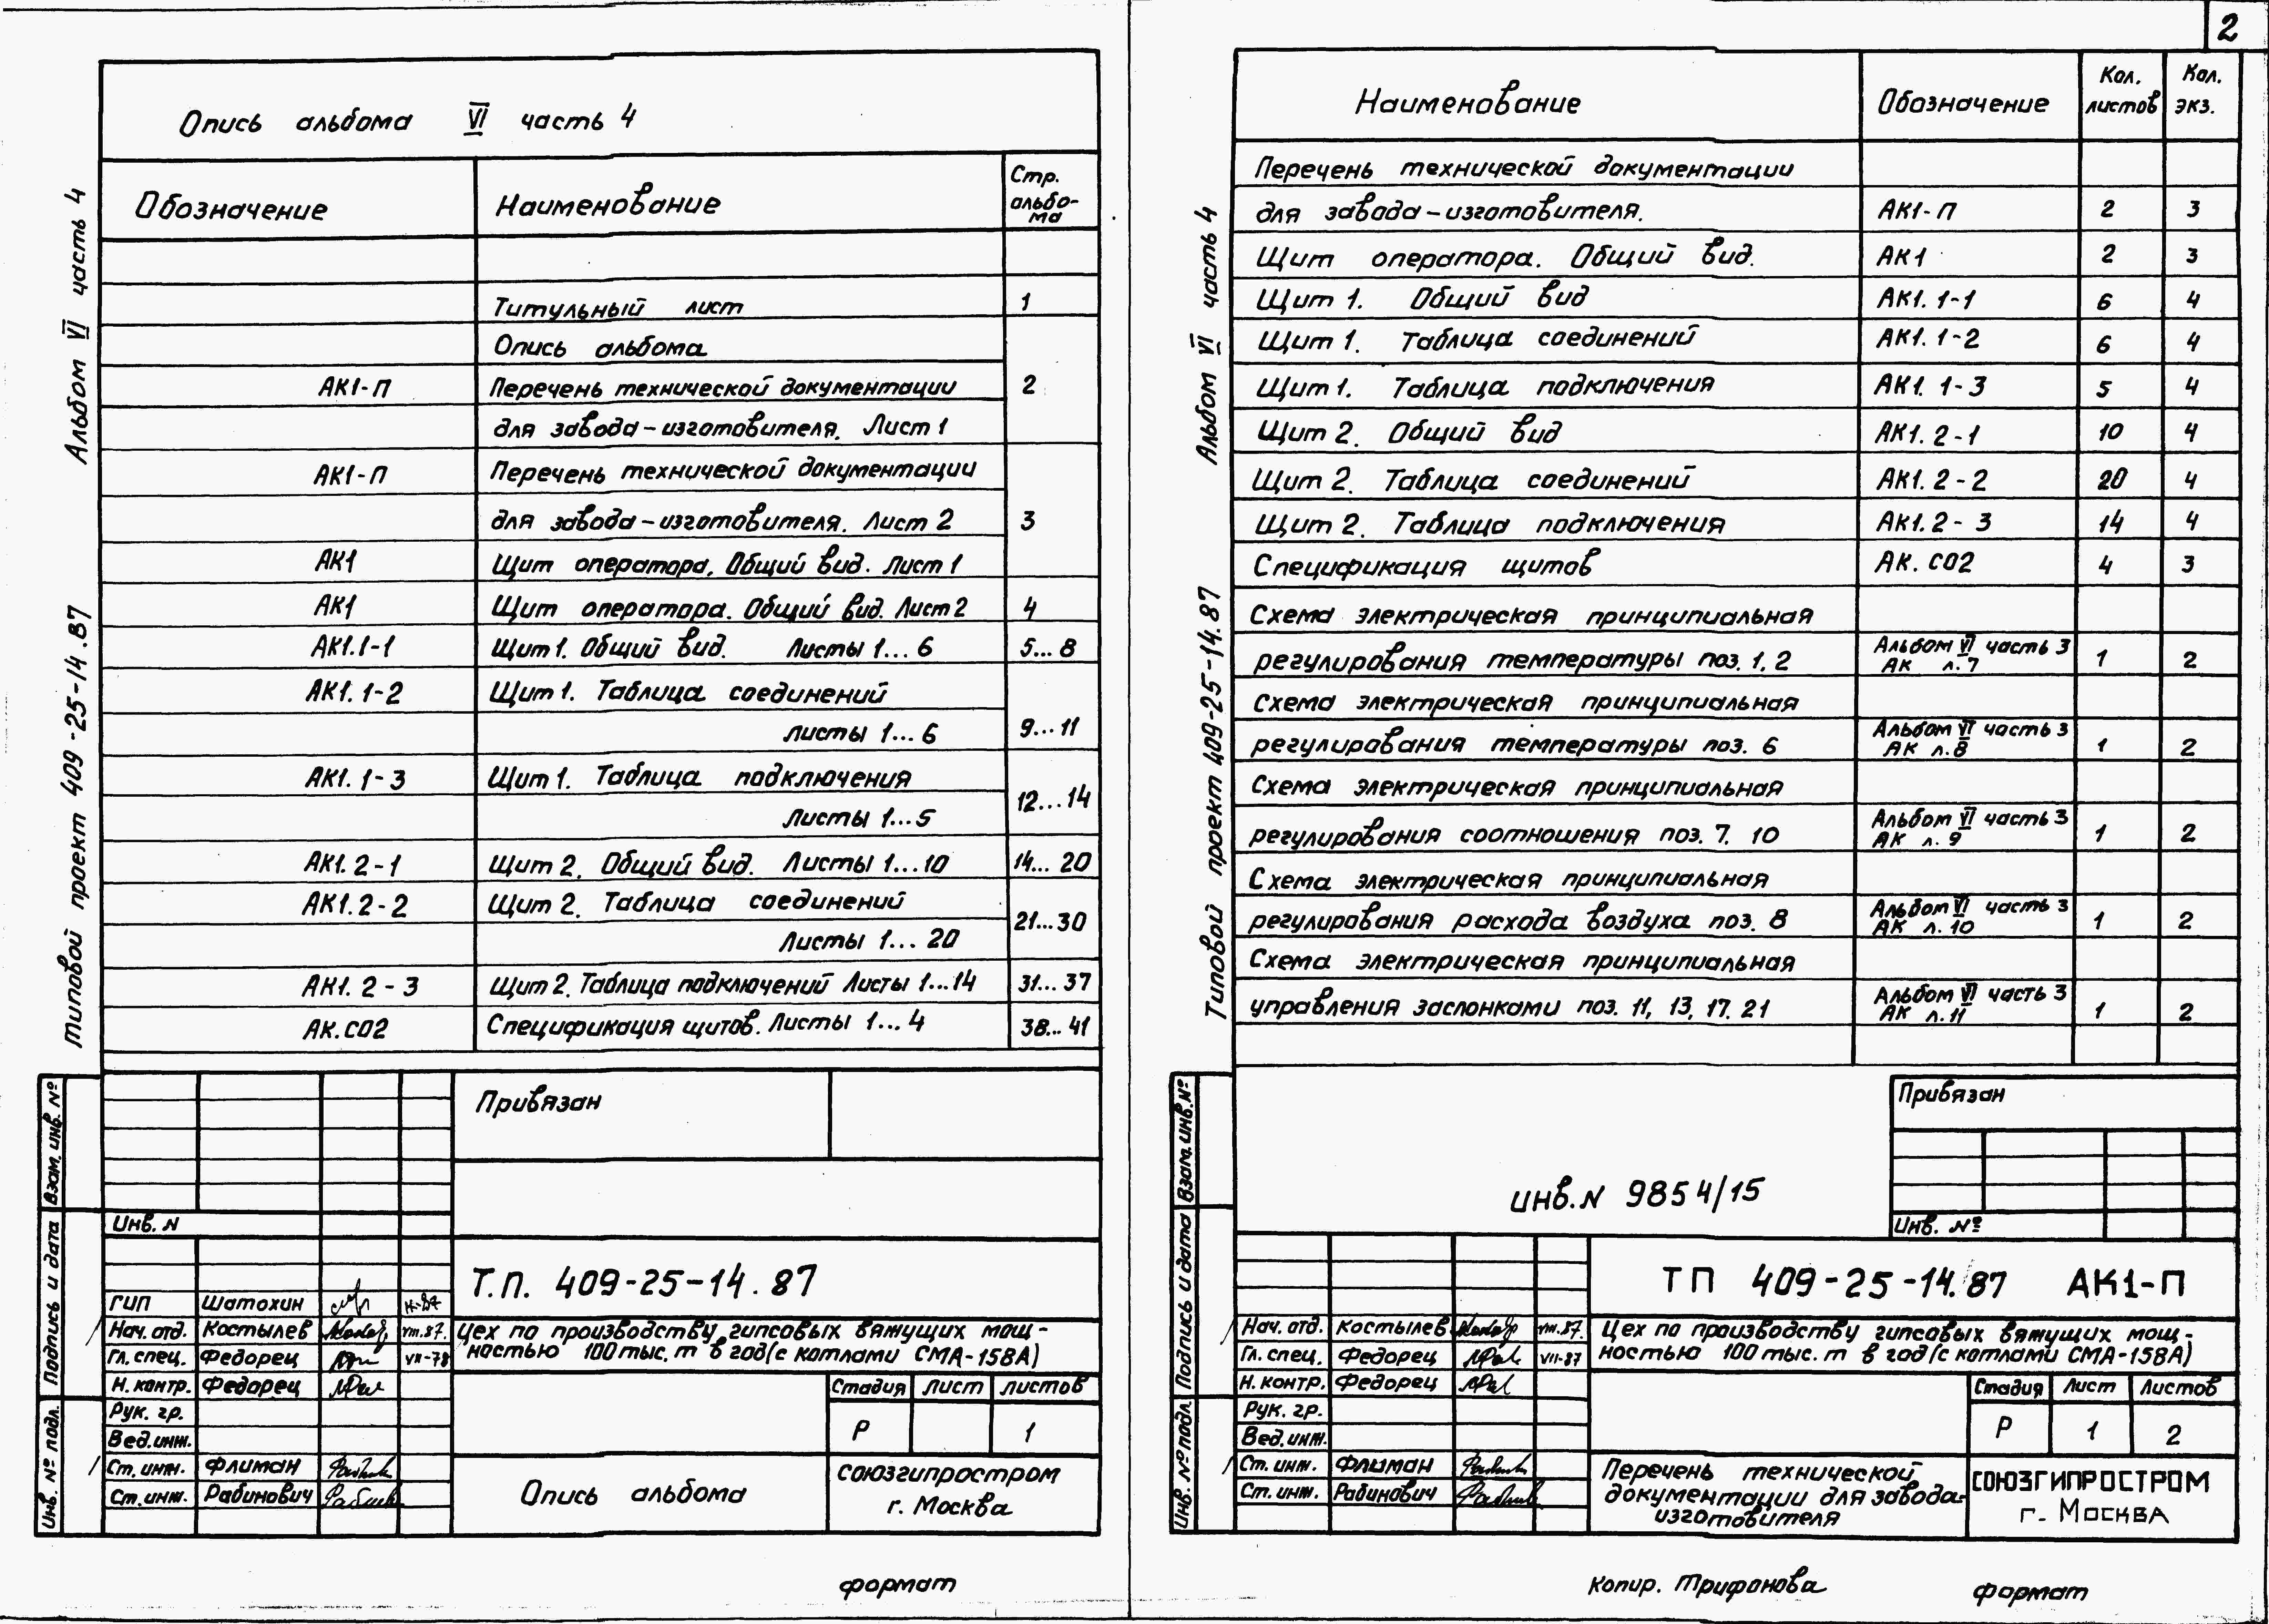 2
Альбом VI часть 4
Типовой проект 409-25-14.87
Опись альбома VI часть 4
Обозначение Наименование Стр. альбо-
ма
Титульный лист 1
Опись альбома
АК1-П Перечень технической документации 2
для завода-изготовителя. Лист 1
АК1-П Перечень технической документации
для завода-изготовителя. Лист 2 3
АК1 Щит оператора. Общий вид. Лист 1
АК1 Щит оператора. Общий вид. Лист 2 4
АК1.1-1 Щит 1. Общий вид. Листы 1...6 5...8
АК1.1-2 Щит 1. Таблица соединений
Листы 1...6 9...11
АК1.1-3 Щит 1. Таблица подключения
Листы 1...5 12...14
АК1.2-1 Щит 2. Общий вид. Листы 1...10 14...20
АК1.2-2 Щит 2. Таблица соединений
Листы 1...20 21...30
АК1.2-3 Щит 2. Таблица подключений Листы 1...14 31...37
АК.СО2 Спецификация щитов. Листы 1...4 38...41
Привязан
Инв. N
Взам. инв. №
Подпись и дата
Инв. № подл.
Т.П. 409-25-14.87
ГИП Шатохин
Нач. отд. Костылев VIII.87.
Гл. спец. Федорец VII-78
Н. контр. Федорец
Рук. гр.
Вед. инж.
Ст. инж. Флиман
Ст. инж. Рабинович
Цех по производству гипсовых вяжущих мощ-
ностью 100 тыс. т в год (с котлами СМА-158А)
Стадия Лист Листов
Р 1
Опись альбома
союзгипростром
г. Москва
формат
Альбом VI часть 4
Типовой проект 409-25-14.87
Наименование Обозначение Кол. листов Кол. экз.
Перечень технической документации
для завода-изготовителя. АК1-П 2 3
Щит оператора. Общий вид. АК1 2 3
Щит 1. Общий вид АК1.1-1 6 4
Щит 1. Таблица соединений АК1.1-2 6 4
Щит 1. Таблица подключения АК1.1-3 5 4
Щит 2. Общий вид АК1.2-1 10 4
Щит 2. Таблица соединений АК1.2-2 20 4
Щит 2. Таблица подключения АК1.2-3 14 4
Спецификация щитов АК.СО2 4 3
Схема электрическая принципиальная
регулирования температуры поз. 1, 2 Альбом VI часть 3 АК л.7 1 2
Схема электрическая принципиальная
регулирования температуры поз. 6 Альбом VI часть 3 АК л.8 1 2
Схема электрическая принципиальная
регулирования соотношения поз. 7, 10 Альбом VI часть 3 АК л. 9 1 2
Схема электрическая принципиальная
регулирования расхода воздуха поз. 8 Альбом VI часть 3 АК л. 10 1 2
Схема электрическая принципиальная
управления заслонками поз. 11, 13, 17, 21 Альбом VI часть 3 АК л.11 1 2
Привязан
Инв. №
инв. N 9854/15
Взам. инв. №
Подпись и дата
Инв. № подл.
ТП 409-25-14.87 АК1-П
Нач. отд. Костылев VIII.87.
Гл. спец. Федорец VII-87
Н. контр. Федорец
Рук. гр.
Вед. инж.
Ст. инж. Флиман
Ст. инж. Рабинович
Цех по производству гипсовых вяжущих мощ-
ностью 100 тыс. т в год (с котлами СМА-158А)
Стадия Лист Листов
Р 1 2
Перечень технической
документации для завода-
изготовителя
СОЮЗГИПРОСТРОМ
г. Москва
Копир. Трифонова
формат